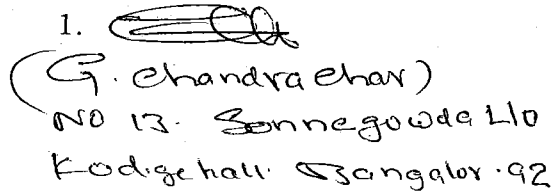 1.
(G. Chandra Char)
NO 13. Sonnegowda L/o
Kodigehalli Bangalor. 92